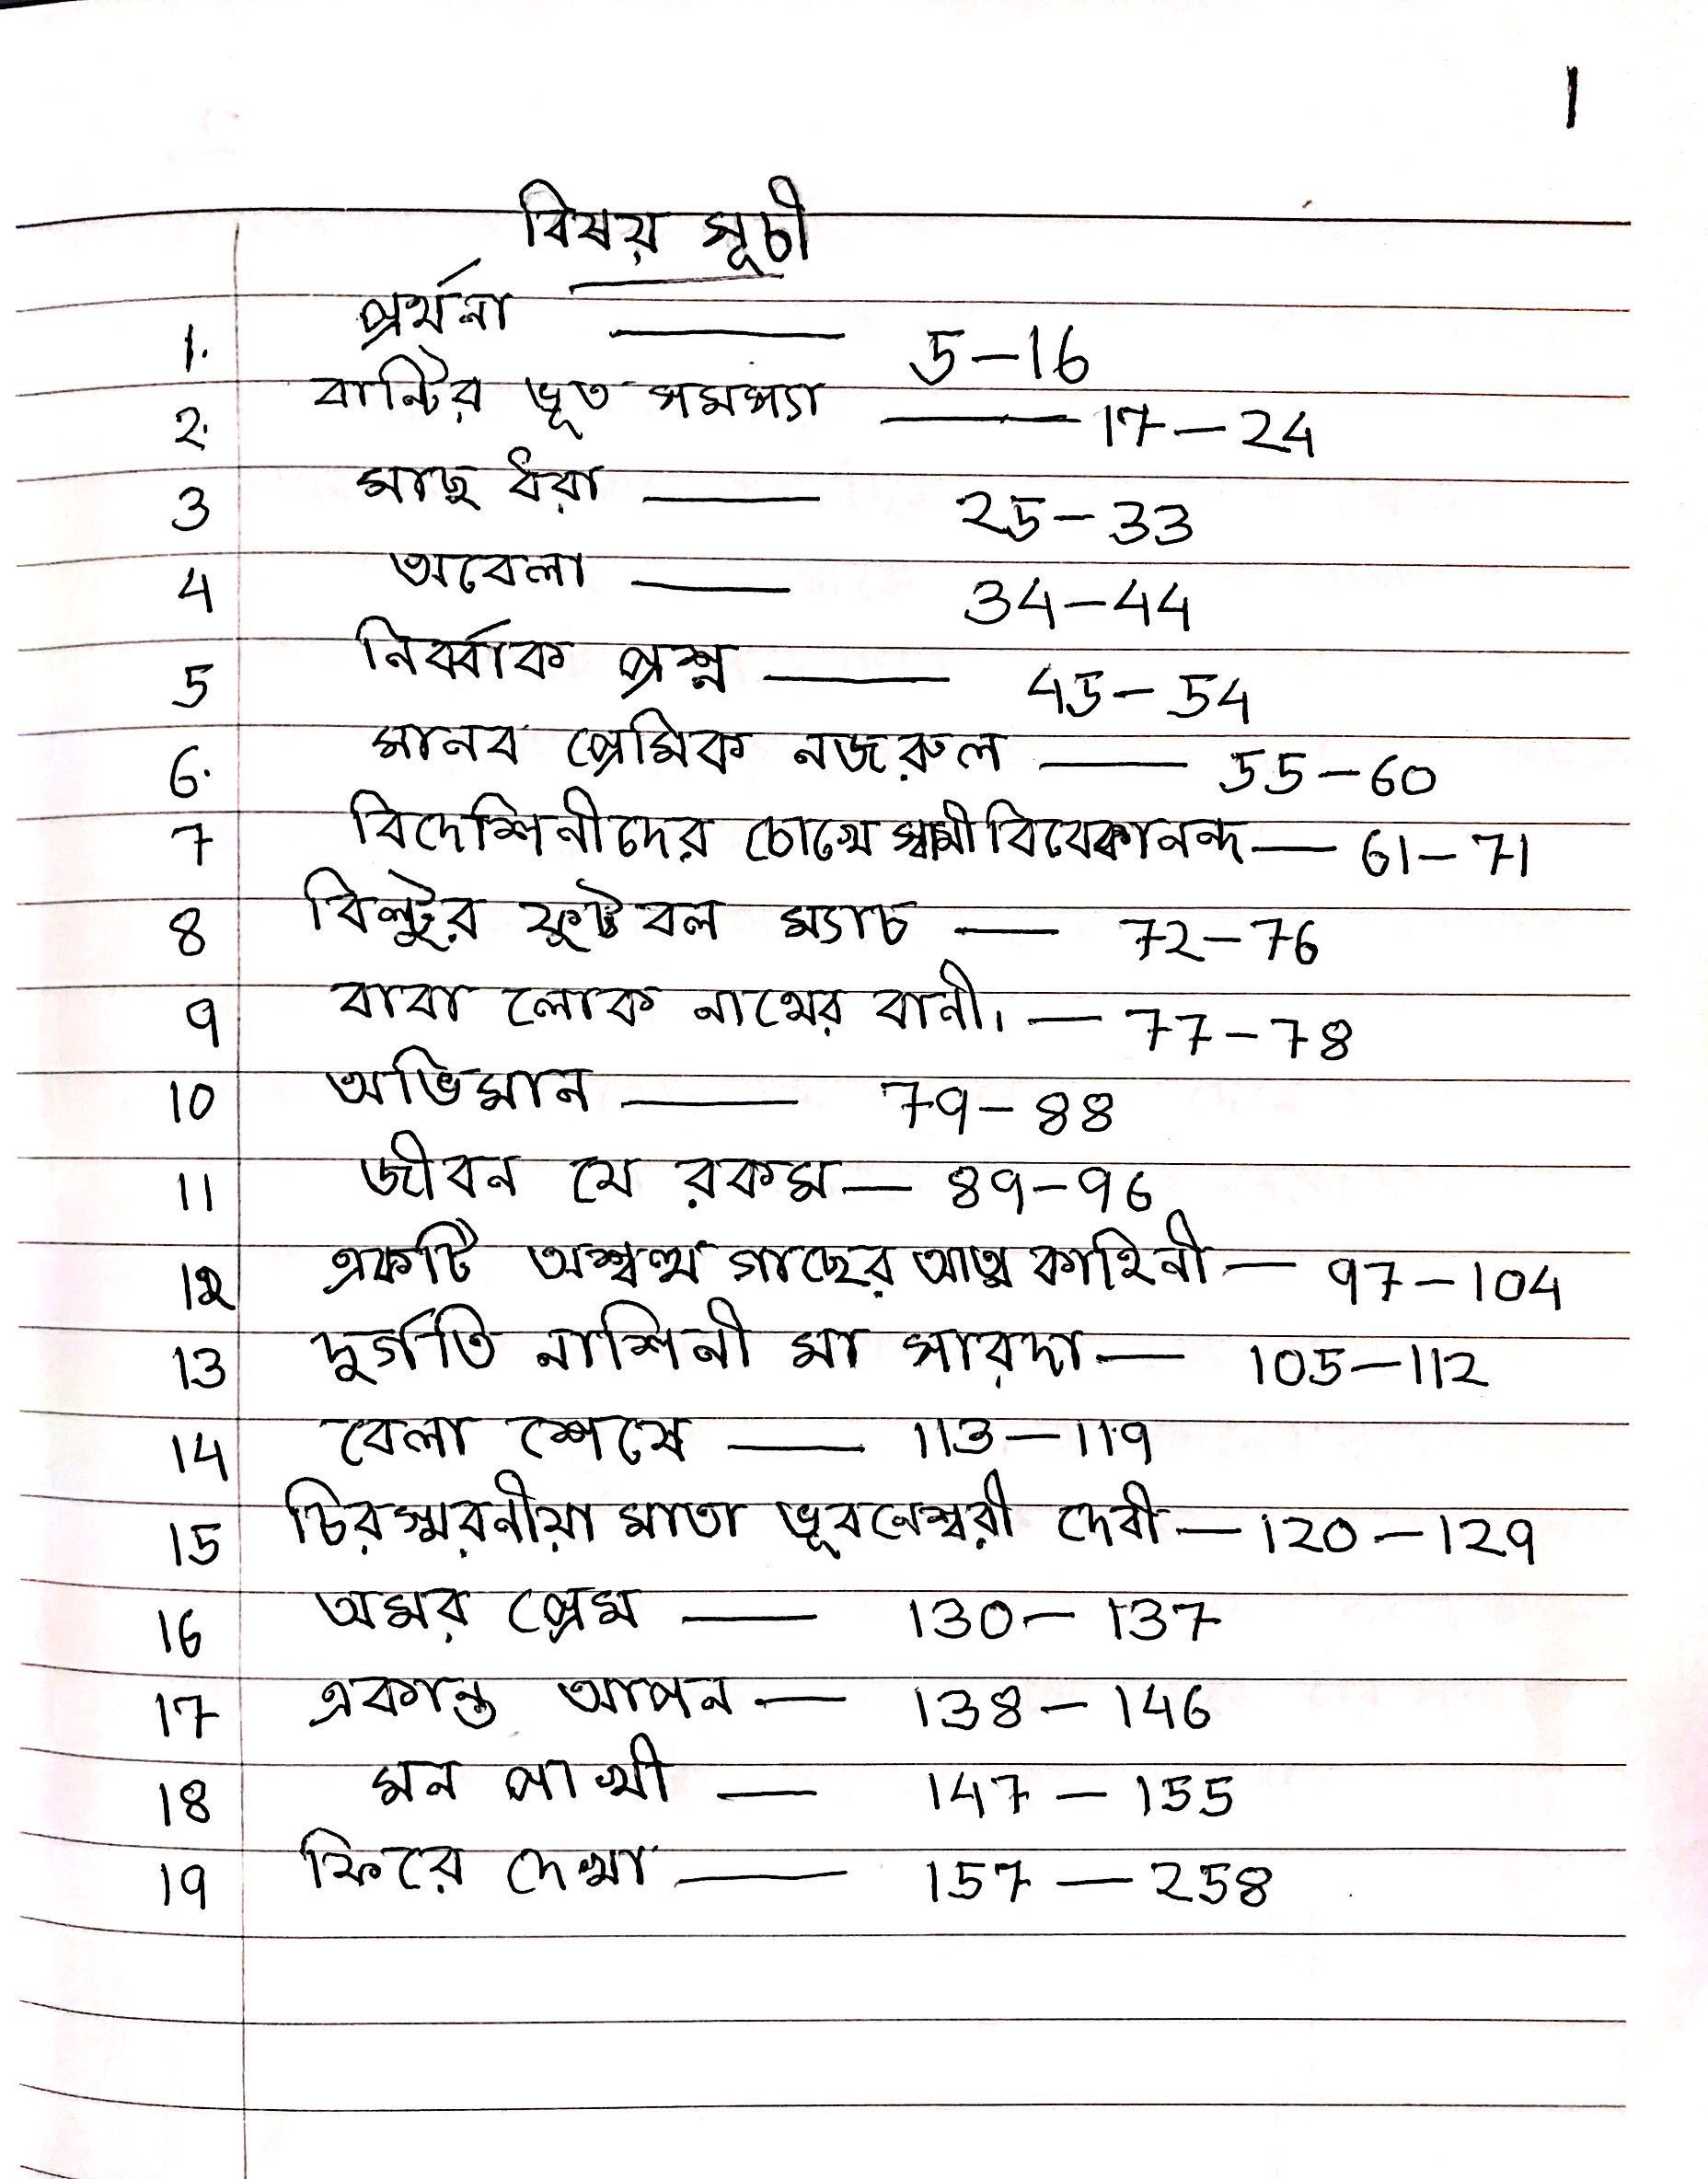 1
বিষয় সূচী
1. প্রর্থনা — 5-16
2. বান্টির ভূত সমস্যা — 17-24
3 মাছ ধরা — 25-33
4 অবেলা — 34-44
5 নির্ব্বাক প্রশ্ন — 45-54
6. মানব প্রেমিক নজরুল — 55-60
7 বিদেশিনীদের চোখে স্বামী বিবেকানন্দ — 61-71
8 বিল্টুর ফুটবল ম্যাচ — 72-76
9 বাবা লোক নাথের বানী। — 77-78
10 অভিমান — 79-88
11 জীবন যে রকম — 89-96
12 একটি অশ্বত্থ গাছের আত্ম কাহিনী — 97-104
13 দুর্গতি নাশিনী মা সারদা — 105-112
14 বেলা শেষে — 113-119
15 চিরস্মরনীয়া মাতা ভূবনেশ্বরী দেবী — 120-129
16 অমর প্রেম — 130-137
17 একান্ত আপন — 138-146
18 মন পাখী — 147-155
19 ফিরে দেখা — 157-258